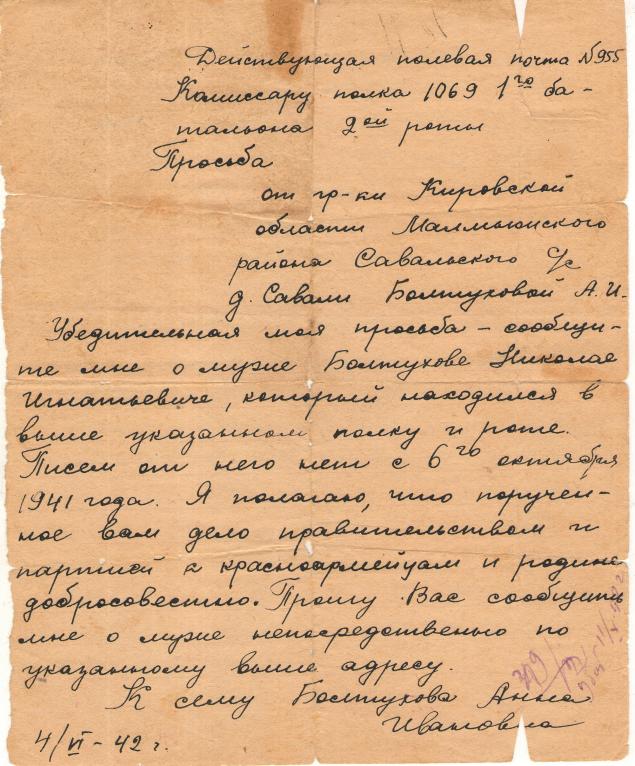 Действующая полевая почта N 955
Комиссару полка 1069 1го ба-
тальона 2ой роты
Просьба
от гр-ки Кировской
области Малмыжского
района Савальского с/с
д. Савали Болтуховой А.И.
Убедительная моя просьба – сообщи-
те мне о муже Болтухове Николае
Игнатьевиче, который находился в
выше указанном полку и роте.
Писем от него нет с 6го октября
1941 года. Я полагаю, что поручен-
ное вам дело правительством и
партией к красноармейцам и родине
добросовестно. Прошу Вас сообщить
мне о муже непосредственно по
указанному выше адресу.
К сему Болтухова Анна
Ивановна
4/VI – 42 г.